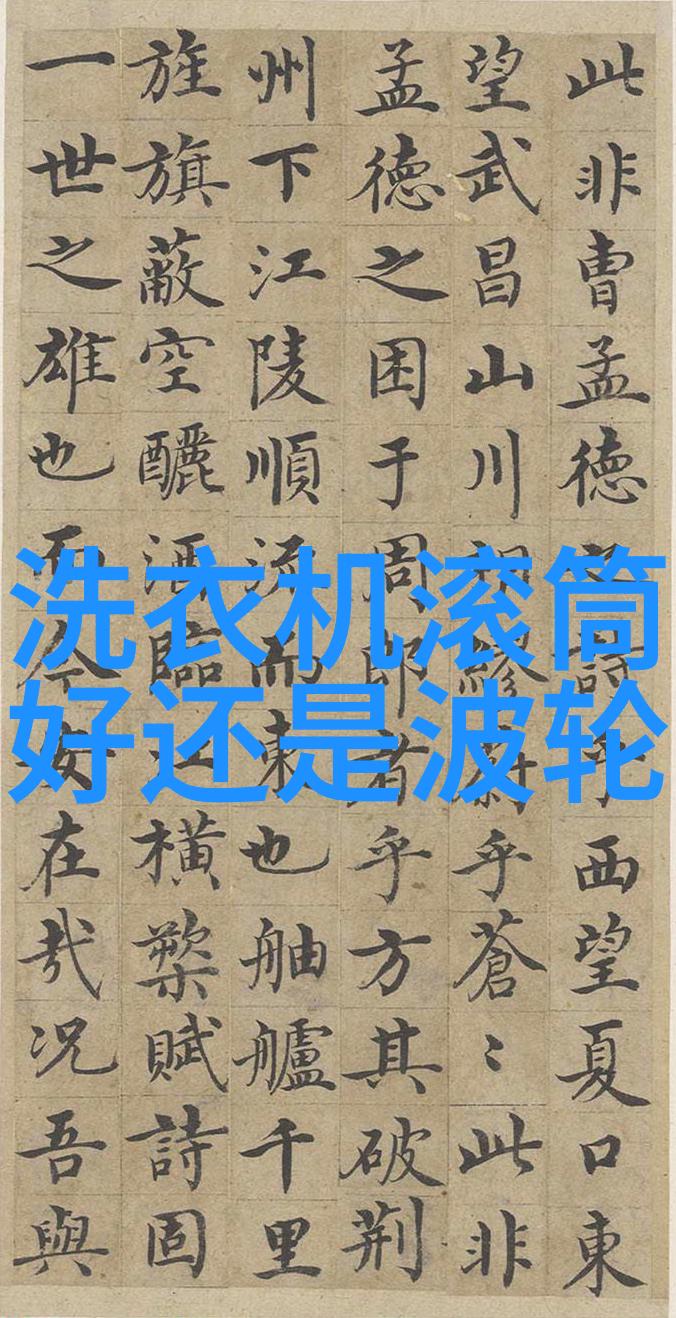 洗衣机滚筒
好还是波轮
此非曹孟徳之詩乎西望夏口東
望武昌山川相繆蔚乎蒼〻此非
孟徳之困于周郎者乎方其破荆
州下江陵順流而東也舳艫千里
旌旗蔽空釃酒臨江橫槊賦詩固
一世之雄也而今安在哉况吾與